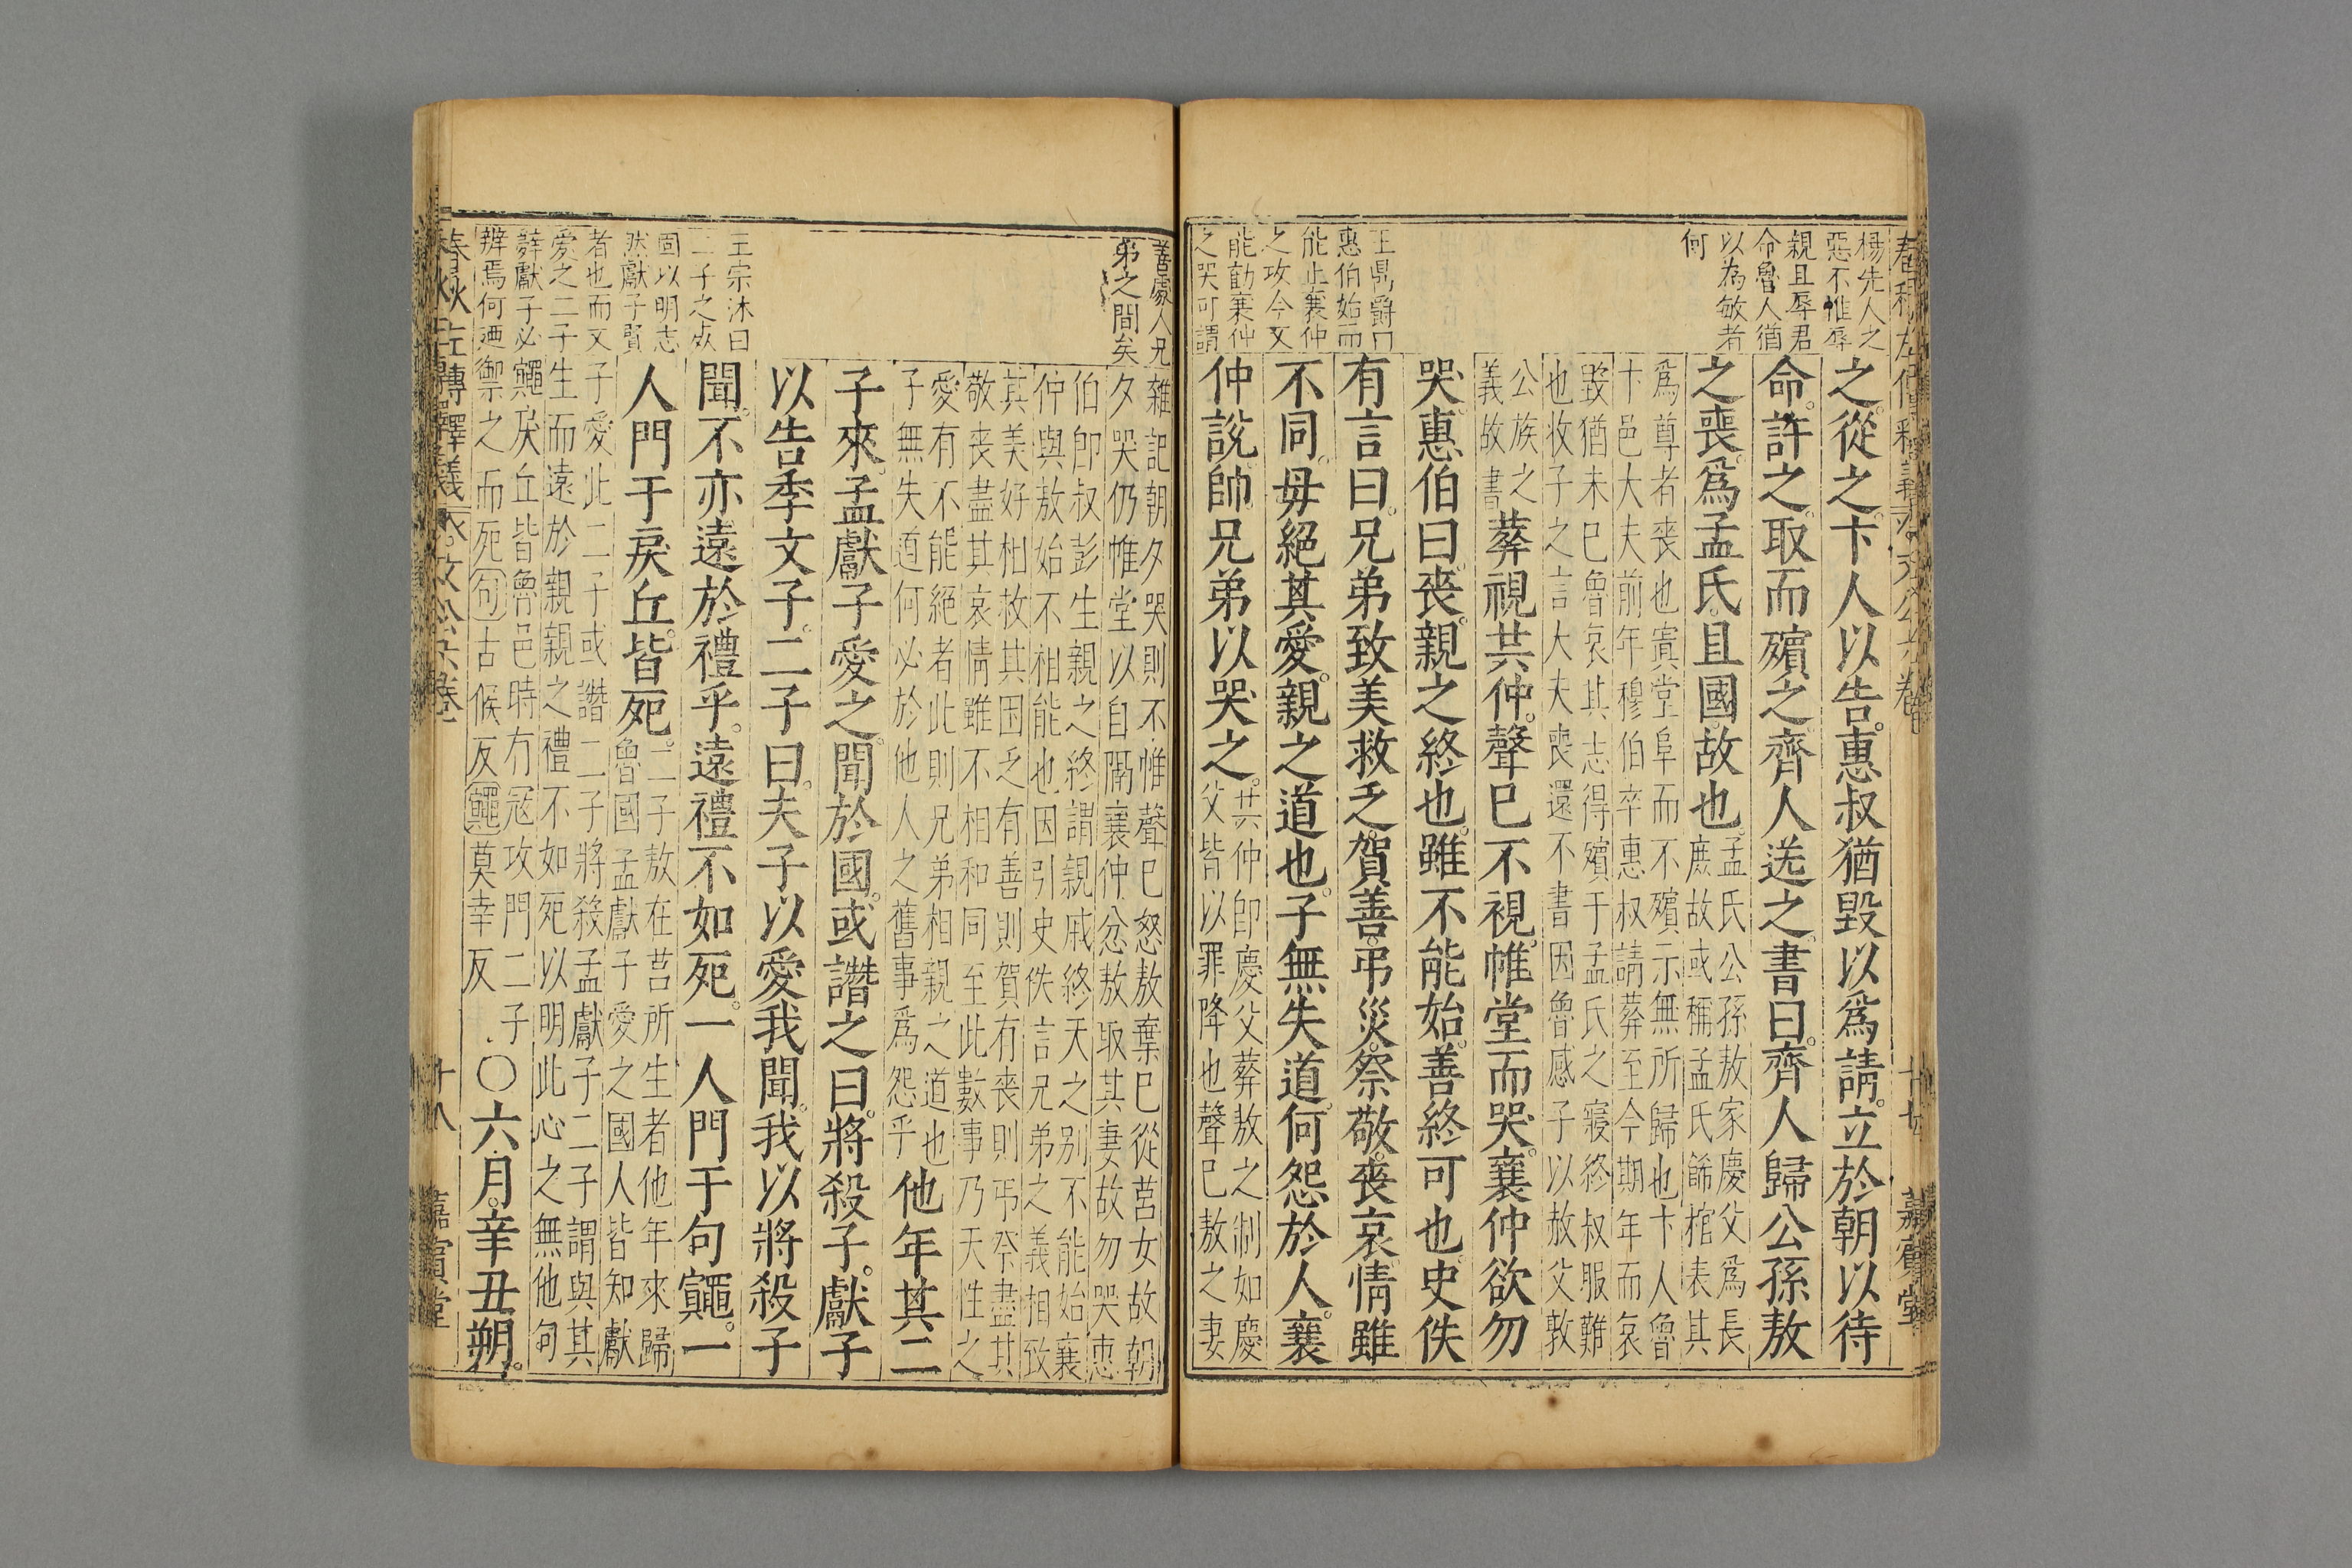 楊先人之
惡不惟辱
親且辱君
命魯人猶
以為敏者
何
王鼎爵曰
惠伯始而
能止襄仲
之攻今又
能勸襄仲
之哭可謂
之從之卞人以告惠叔猶毀以爲請立於朝以待
命許之取而殯之齊人送之書曰齊人歸公孫敖
之喪爲孟氏且國故也
孟氏公孫敖家慶父爲長
庶故或稱孟氏飾棺表其
爲尊者喪也寘堂阜而不殯示無所歸也卞人魯
卞邑大夫前年穆伯卒惠叔請葬至今期年而哀
毀猶未已魯哀其志得殯于孟氏之寢終叔服難
也收子之言大夫喪還不書因魯感子以赦父敦
公族之
義故書
葬視共仲聲已不視帷堂而哭襄仲欲勿
哭惠伯曰喪親之終也雖不能始善終可也史佚
有言曰兄弟致美救乏賀善弔災祭敬喪哀情雖
不同毋絕其愛親之道也子無失道何怨於人襄
仲說帥兄弟以哭之
共仲即慶父葬敖之制如慶
父皆以罪降也聲巳敖之妻
善處人兄
弟之間矣
雜記朝夕哭則不惟聲巳怒敖棄巳從莒女故朝
夕哭仍帷堂以自隔襄仲忿敖取其妻故勿哭惠
伯即叔彭生親之終謂親戚終天之别不能始襄
仲與敖始不相能也因引史佚言兄弟之義相致
其美好相救其困乏有善則賀有喪則弔祭盡其
敬喪盡其哀情雖不相和同至此數事乃天性之
愛有不能絕者此則兄弟相親之道也
子無失道何必於他人之舊事爲怨乎
他年其二
子來孟獻子愛之聞於國或譖之曰將殺子獻子
以告季文子二子曰夫子以愛我聞我以將殺子
聞不亦遠於禮乎遠禮不如死一人門于句鼆一
人門于戾丘皆死
二子敖在莒所生者他年來歸
魯國孟獻子愛之國人皆知獻
子愛此二子或譖二子將殺孟獻子二子謂與其
生而遠於親親之禮不如死以明此心之無他句
鼆戾丘皆魯邑時有冦攻門二子
禦之而死句古候反鼆莫幸反
○六月辛丑朔
王宗沐曰
二子之死
固以明志
然獻子賢
者也而文
愛之二子
辭獻子必
辨焉何廼
春秋左傳釋義 文公六卷
十八
嘉賓堂